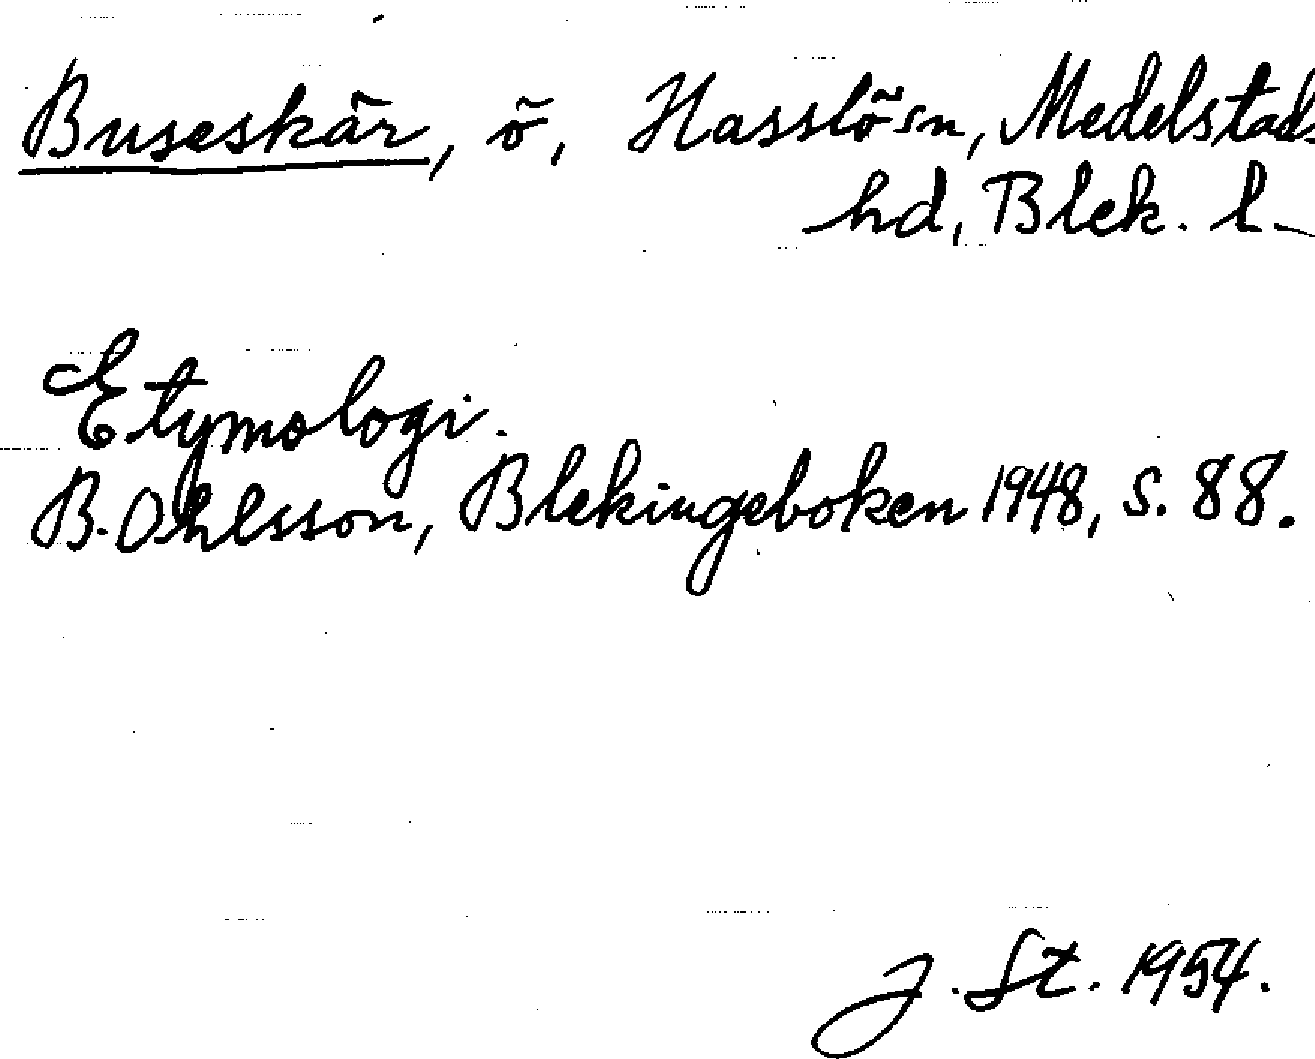 Buseskär, ö, Hasslö sn, Medelstads
hd, Blek. l.
Etymologi.
B. Ohlsson, Blekingeboken 1948, s. 88.
J. St. 1954.